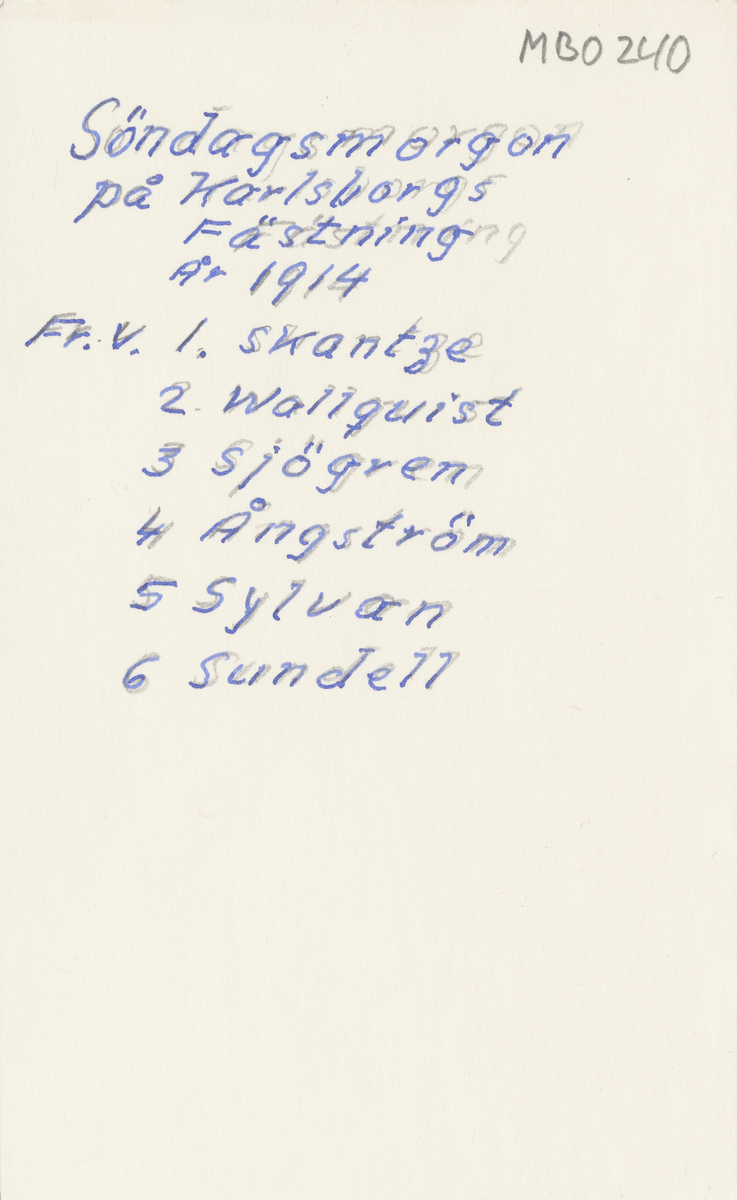 MBO 240
Söndagsmorgon
på Karlsborgs
Fästning
År 1914
Fr. v. 1. Skantze
2. Wallquist
3 Sjögren
4 Ångström
5 Sylvan
6 Sundell